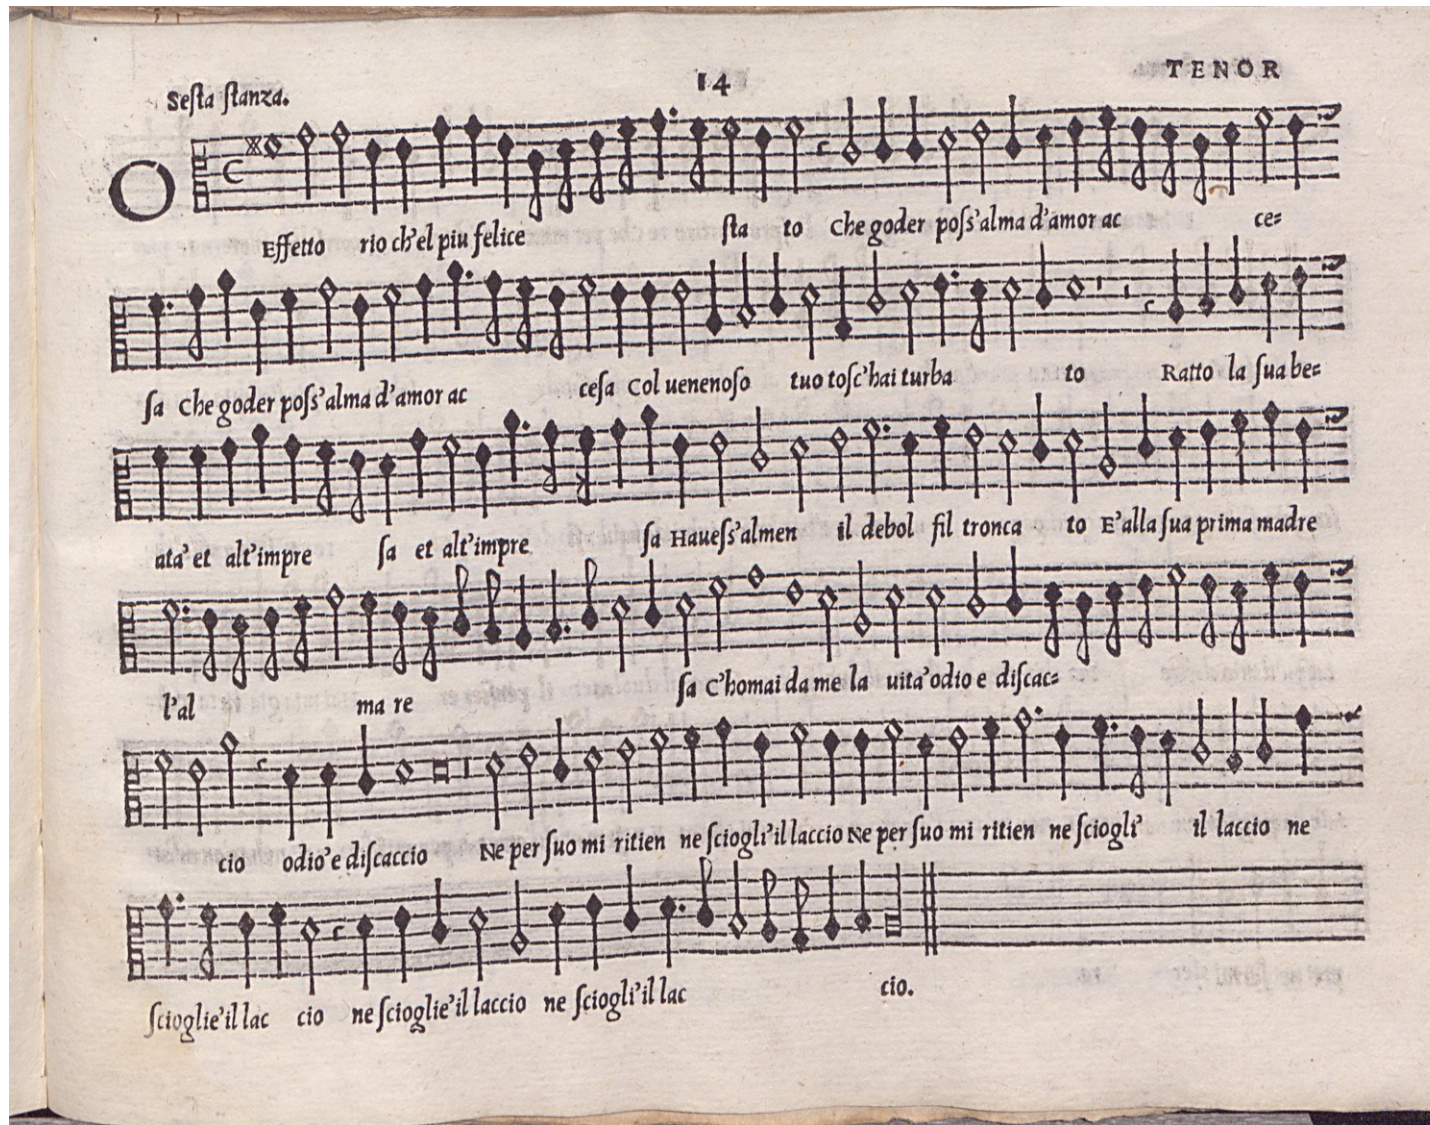 14
TENOR
Sesta stanza.
O Effetto rio ch'el piu felice sta to Che goder poss'alma d'amor ac ce=
sa Che goder poss'alma d'amor ac cesa Col uenenoso tuo tosc'hai turba to Ratto la sua be=
ata' et alt'impre sa et alt'impre sa Hauess'almen il debol fil tronca to E'alla sua prima madre
l'al ma re sa C'homai da me la uita' odio e discac=
cio odio' e discaccio Ne per suo mi ritien ne sciogli' il laccio Ne per suo mi ritien ne sciogli' il laccio ne
scioglie' il lac cio ne scioglie' il laccio ne sciogli' il lac cio.